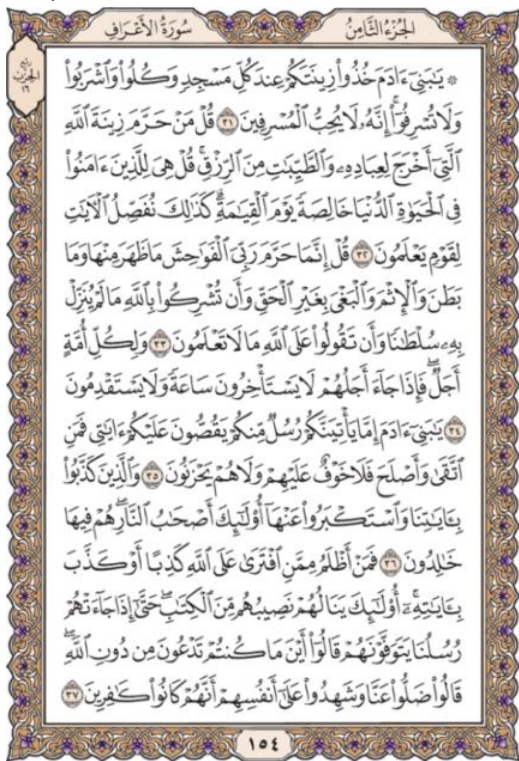 الجُزْءُ الثَّامِنُ
سُورَةُ الأَعْرَافِ
ربع
الحزب
١٦
۞ يَٰبَنِىٓ ءَادَمَ خُذُوا۟ زِينَتَكُمْ عِندَ كُلِّ مَسْجِدٍ وَكُلُوا۟ وَٱشْرَبُوا۟
وَلَا تُسْرِفُوٓا۟ ۚ إِنَّهُۥ لَا يُحِبُّ ٱلْمُسْرِفِينَ ٣١ قُلْ مَنْ حَرَّمَ زِينَةَ ٱللَّهِ
ٱلَّتِىٓ أَخْرَجَ لِعِبَادِهِۦ وَٱلطَّيِّبَٰتِ مِنَ ٱلرِّزْقِ ۚ قُلْ هِىَ لِلَّذِينَ ءَامَنُوا۟
فِى ٱلْحَيَوٰةِ ٱلدُّنْيَا خَالِصَةً يَوْمَ ٱلْقِيَٰمَةِ ۗ كَذَٰلِكَ نُفَصِّلُ ٱلْءَايَٰتِ
لِقَوْمٍ يَعْلَمُونَ ٣٢ قُلْ إِنَّمَا حَرَّمَ رَبِّىَ ٱلْفَوَٰحِشَ مَا ظَهَرَ مِنْهَا وَمَا
بَطَنَ وَٱلْإِثْمَ وَٱلْبَغْىَ بِغَيْرِ ٱلْحَقِّ وَأَن تُشْرِكُوا۟ بِٱللَّهِ مَا لَمْ يُنَزِّلْ
بِهِۦ سُلْطَٰنًا وَأَن تَقُولُوا۟ عَلَى ٱللَّهِ مَا لَا تَعْلَمُونَ ٣٣ وَلِكُلِّ أُمَّةٍ
أَجَلٌ ۖ فَإِذَا جَآءَ أَجَلُهُمْ لَا يَسْتَأْخِرُونَ سَاعَةً ۖ وَلَا يَسْتَقْدِمُونَ
٣٤ يَٰبَنِىٓ ءَادَمَ إِمَّا يَأْتِيَنَّكُمْ رُسُلٌ مِّنكُمْ يَقُصُّونَ عَلَيْكُمْ ءَايَٰتِى ۙ فَمَنِ
ٱتَّقَىٰ وَأَصْلَحَ فَلَا خَوْفٌ عَلَيْهِمْ وَلَا هُمْ يَحْزَنُونَ ٣٥ وَٱلَّذِينَ كَذَّبُوا۟
بِـَٔايَٰتِنَا وَٱسْتَكْبَرُوا۟ عَنْهَآ أُو۟لَٰٓئِكَ أَصْحَٰبُ ٱلنَّارِ ۖ هُمْ فِيهَا
خَٰلِدُونَ ٣٦ فَمَنْ أَظْلَمُ مِمَّنِ ٱفْتَرَىٰ عَلَى ٱللَّهِ كَذِبًا أَوْ كَذَّبَ
بِـَٔايَٰتِهِۦٓ ۚ أُو۟لَٰٓئِكَ يَنَالُهُمْ نَصِيبُهُم مِّنَ ٱلْكِتَٰبِ ۖ حَتَّىٰٓ إِذَا جَآءَتْهُمْ
رُسُلُنَا يَتَوَفَّوْنَهُمْ قَالُوٓا۟ أَيْنَ مَا كُنتُمْ تَدْعُونَ مِن دُونِ ٱللَّهِ ۖ
قَالُوا۟ ضَلُّوا۟ عَنَّا وَشَهِدُوا۟ عَلَىٰٓ أَنفُسِهِمْ أَنَّهُمْ كَانُوا۟ كَٰفِرِينَ ٣٧
١٥٤